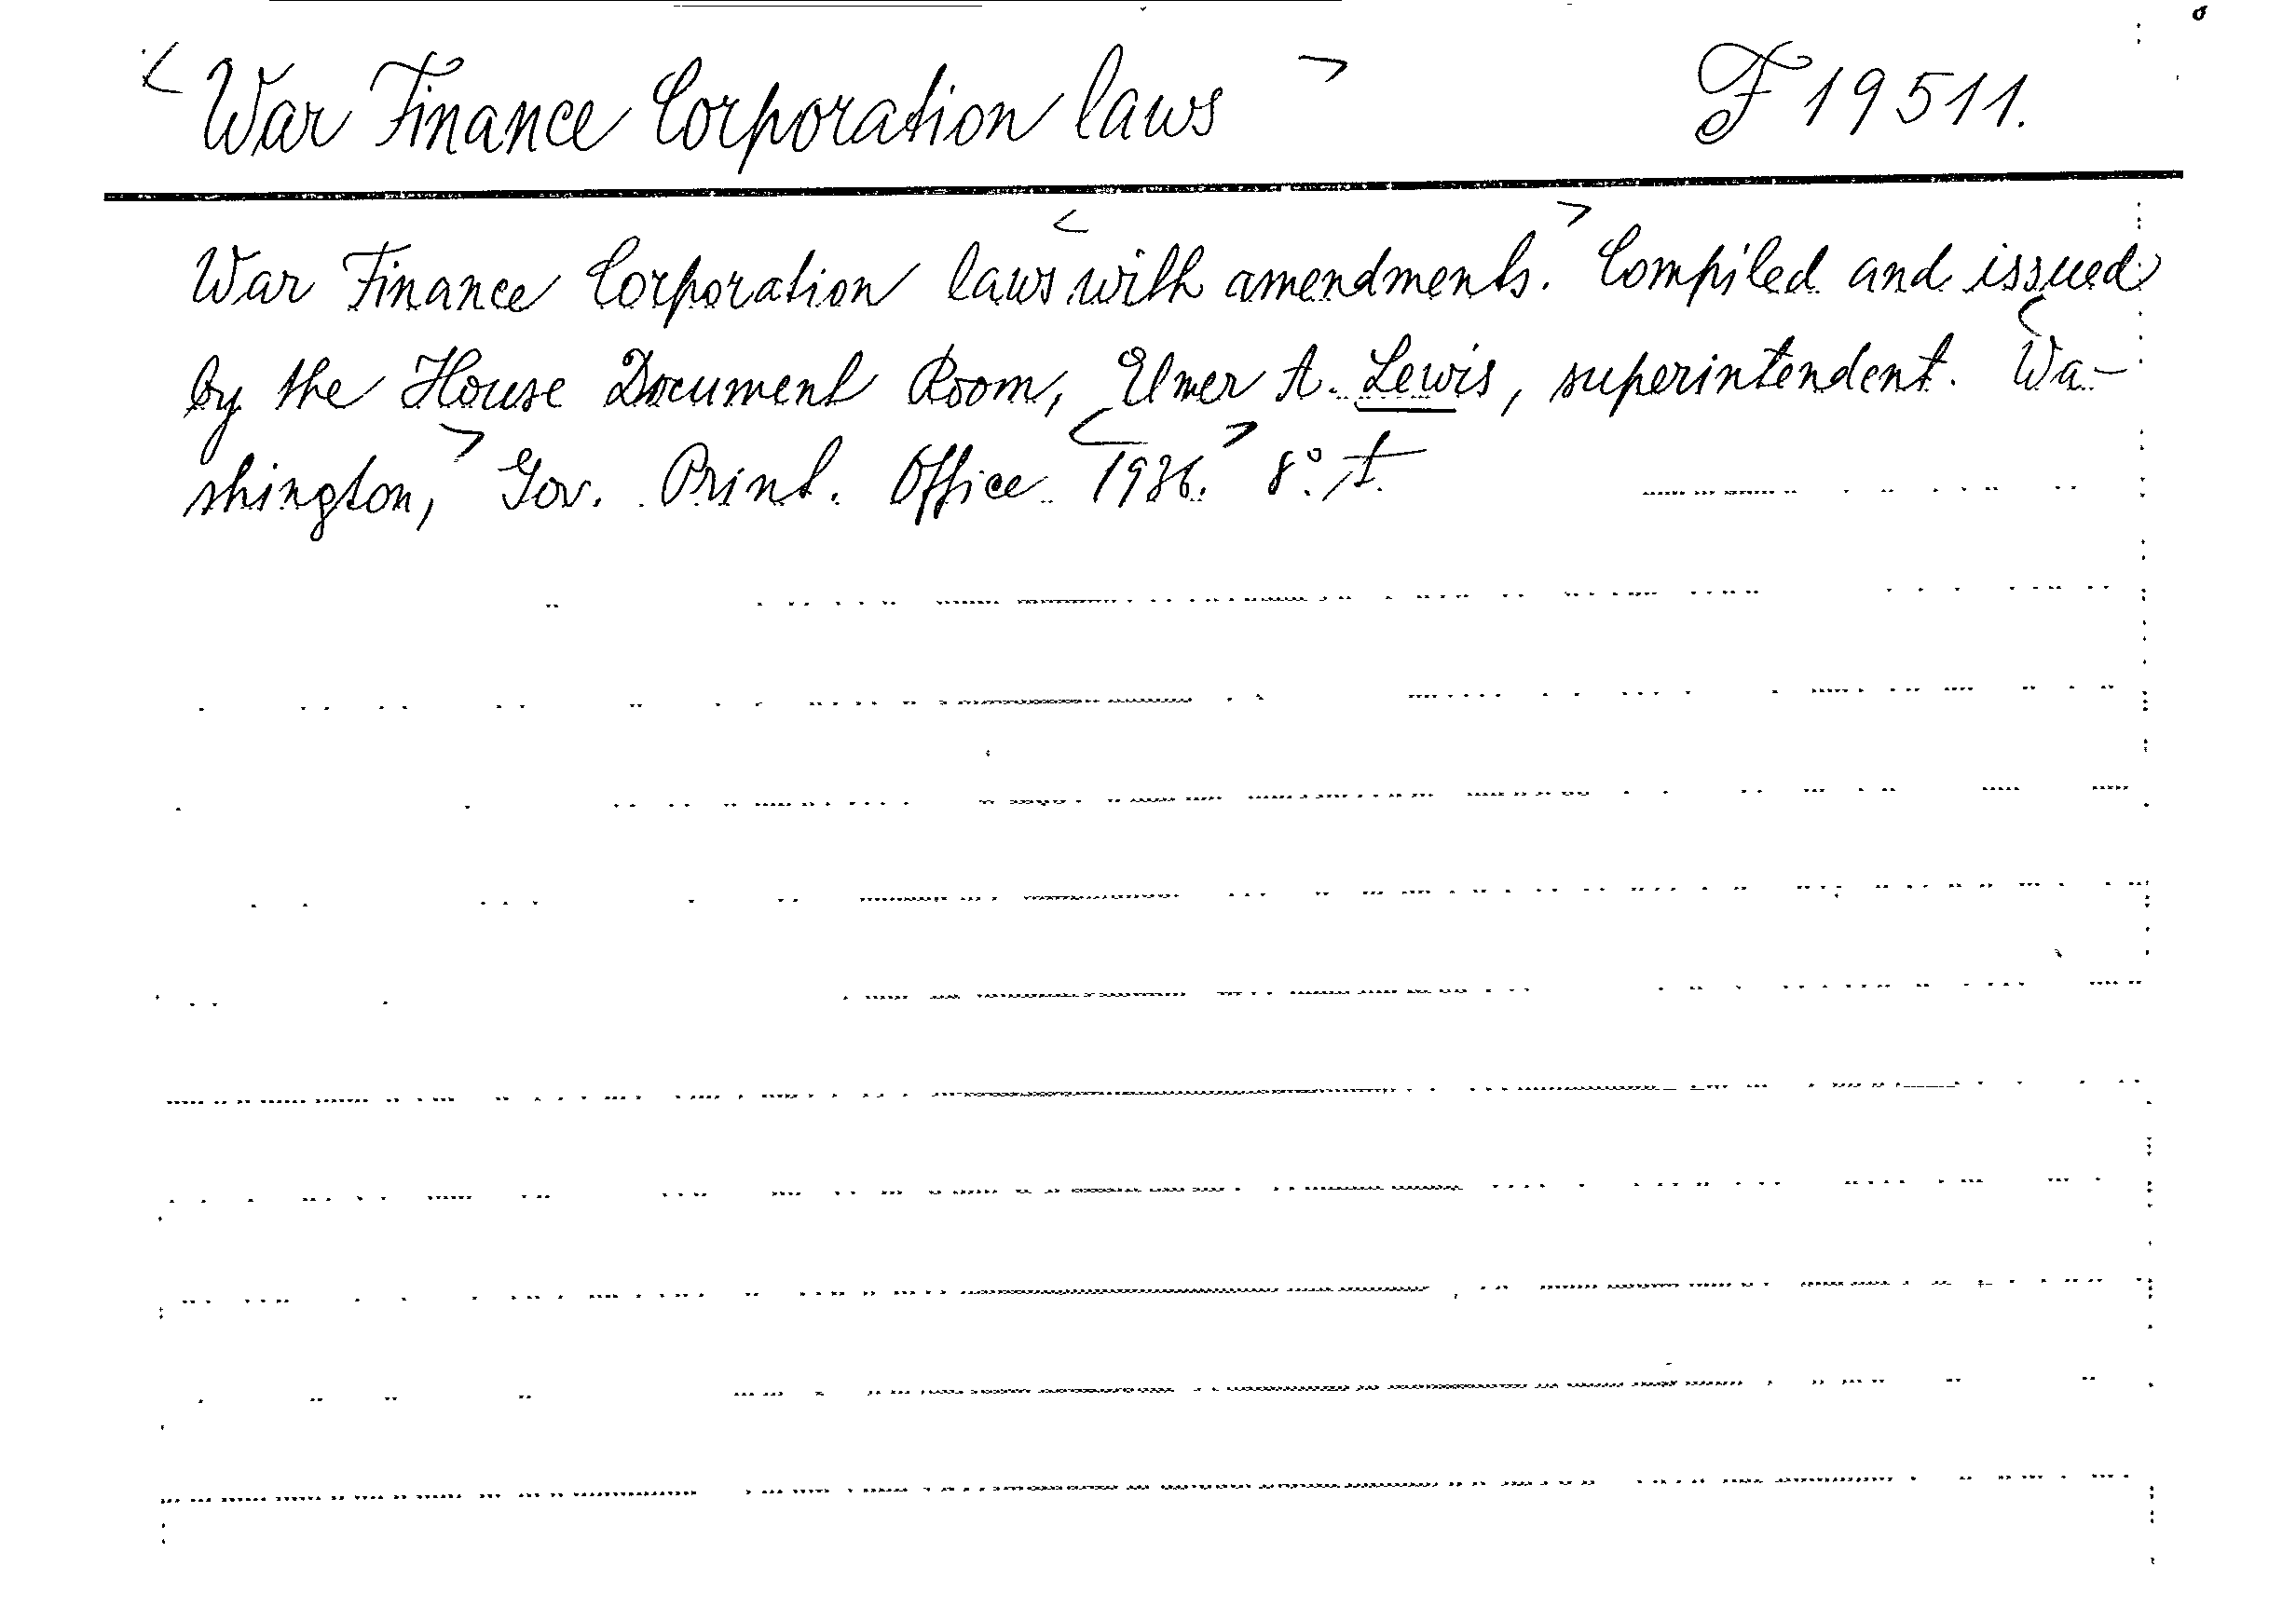 < War Finance Corporation laws > F 19511.
War Finance Corporation laws < with amendments. > Compiled and issued
by the House Document Room, Elmer A. Lewis, superintendent. < Wa-
shington, > Gov. Print. Office < 1936. > 8°.